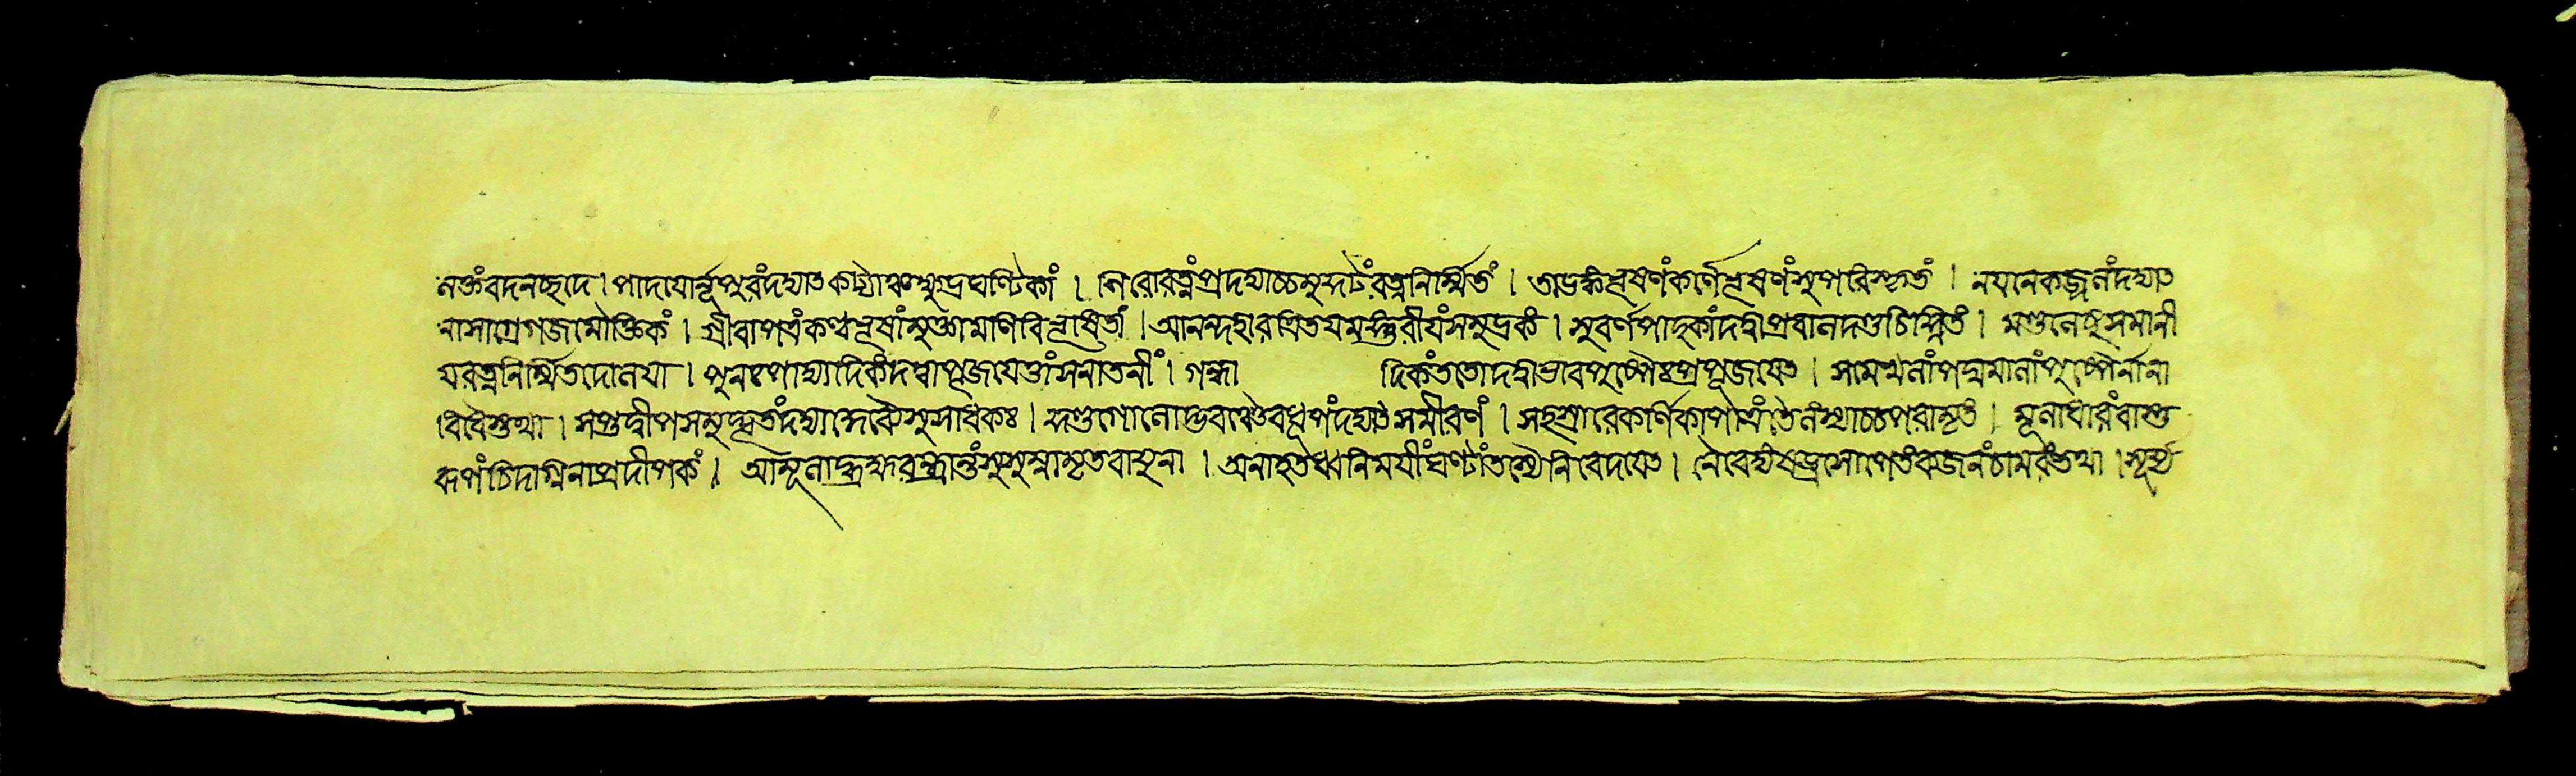 নক্তংবদনচ্ছদে। পাদযোর্নূপুরংদদ্যাৎ কট্যাঞ্চক্ষুদ্রঘণ্টিকাং । শিরোরত্নংপ্রদদ্যাচ্চমুকুটংরত্ননির্ম্মিতং । তাডঙ্কংভূষণংকর্ণেভূষণংসুপরিষ্কৃতং । নযনেকজ্জলংদদ্যাৎ
নাসাগ্রেগজমৌক্তিকং । গ্রীবাপত্রংকণ্ঠভূষাংমুক্তামণিবিভূষিতাং । আনন্দহারত্রিতযমঙ্গুরীযংসমুদ্রকং । সুবর্ণপাদুকাংদদ্যাৎপ্রবালদণ্ডচিহ্নিতং । মণ্ডলেষুসমানী
যরত্ননির্ম্মিতদোলযা । পুনঃপাদ্যাদিকংদত্বাপূজযেত্তাংসনাতনীং । গন্ধা দিকংততোদদ্যাৎভাবপুষ্পৈঃপ্রপূজযেৎ । সামান্যনাংপদ্মমালাংপুষ্পৈর্নানা
বিধৈস্তথা । সপ্তদ্বীপসমুদ্ভূতংদদ্যাদ্দেব্যৈসুসাধকঃ । কুণ্ডগোলোদ্ভবঞ্চৈবধূপংদদ্যাৎসমীরণং । সহস্রারেকর্ণিকাপাত্রংতৈলংস্যাচ্চপরামৃতং । মূলাধারংবাস্তু
রূপংচিদগ্নিনাপ্রদীপকং । আমূলাদ্ব্রহ্মরন্ধ্রান্তংসুষুম্নামৃতবাযুনা । অনাহতধ্বনিমযীংঘণ্টাংতস্যৈনিবেদযেৎ । নৈবেদ্যংষড্রসোপেতংব্যজনংচামরংতথা । সূর্য্য